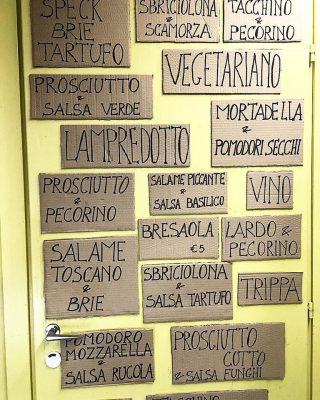 SPECK
BRIE
TARTUFO
SBRICIOLONA
&
SCAMORZA
TACCHINO
&
PECORINO
VEGETARIANO
PROSCIUTTO
&
SALSA VERDE
MORTADELLA
&
POMODORI SECCHI
LAMPREDOTTO
PROSCIUTTO
&
PECORINO
SALAME PICCANTE
&
SALSA BASILICO
VINO
BRESAOLA
€5
LARDO &
PECORINO
SALAME
TOSCANO
&
BRIE
SBRICIOLONA
&
SALSA TARTUFO
TRIPPA
POMODORO
MOZZARELLA
&
SALSA RUCOLA
PROSCIUTTO
COTTO
& SALSA FUNGHI